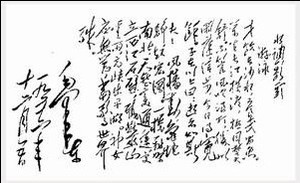 水调歌头
游泳
才饮长沙水又食武昌鱼
万里长江横渡极目楚天
舒不管风吹浪打胜似
闲庭信步今日得宽
馀子在川上曰逝者如斯
夫风樯动龟蛇
静起宏图一桥飞架
南北天堑变通途更
立西江石壁截断巫山
云雨高峡出平湖神女
应无恙当惊世界
殊
毛泽东
一九五六年
十二月五日